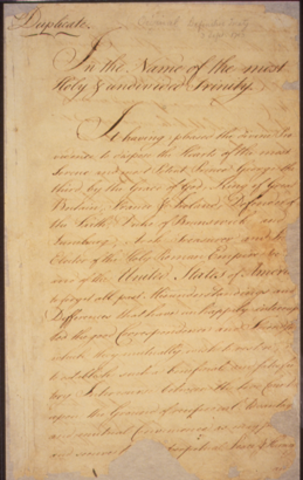 Duplicate.
In the Name of the most
Holy & undivided Trinity.
It having pleased the divine Pro
vidence to dispose the Hearts of the most
Serene and most Potent Prince George the
third, by the Grace of God, King of Great
Britain, France & Ireland, Defender of
the Faith, Duke of Brunswick and
Lunebourg, Arch Treasurer and
Elector of the Holy Roman Empire
and of the United States of Amer
to forget all past Misunderstandings and
Differences that have unhappily interrup
ted the good Correspondence and Friendship
which they mutually wish to
to establish such a beneficial and satisfac
tory Intercourse between the two
upon the Ground of reciprocal Advantages
and mutual Convenience as may
and secure to perpetual Peace &